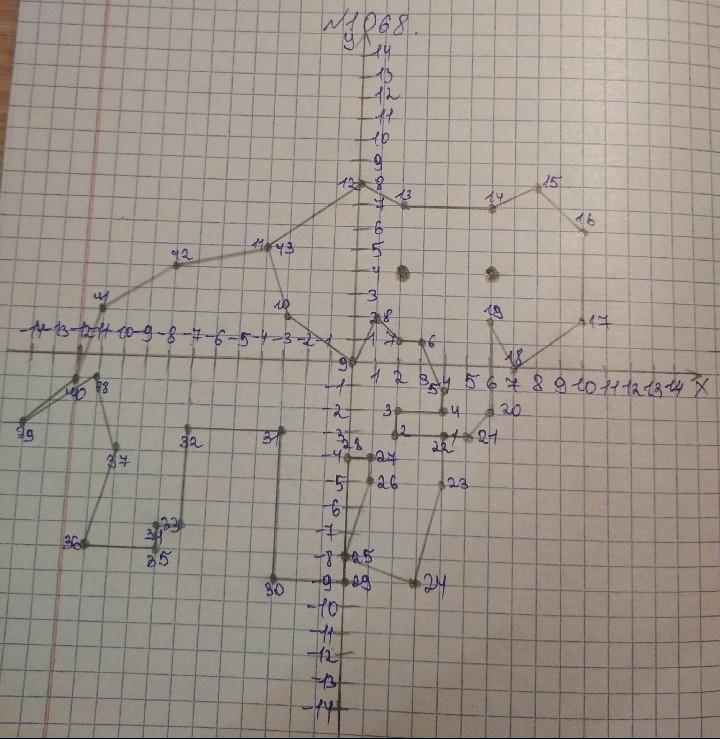 №1068.
У
14
13
12
11
10
9
12 8 15
7 13 14
6 16
11 43 5
42 4
41 3
10 2 8 19 17
-14 -13 -12 -11 -10 -9 -8 -7 -6 -5 -4 -3 -2 -1 1 7 6
9 18
1 2 3 4 5 6 7 8 9 10 11 12 13 14 X
40 38 -1 5
39 -2 3 4 20
32 31 -3 2 22 1 21
37 28
-4 27
-5 26 23
-6
34 33 -7
36 35 -8 25
30 -9 29 24
-10
-11
-12
-13
-14